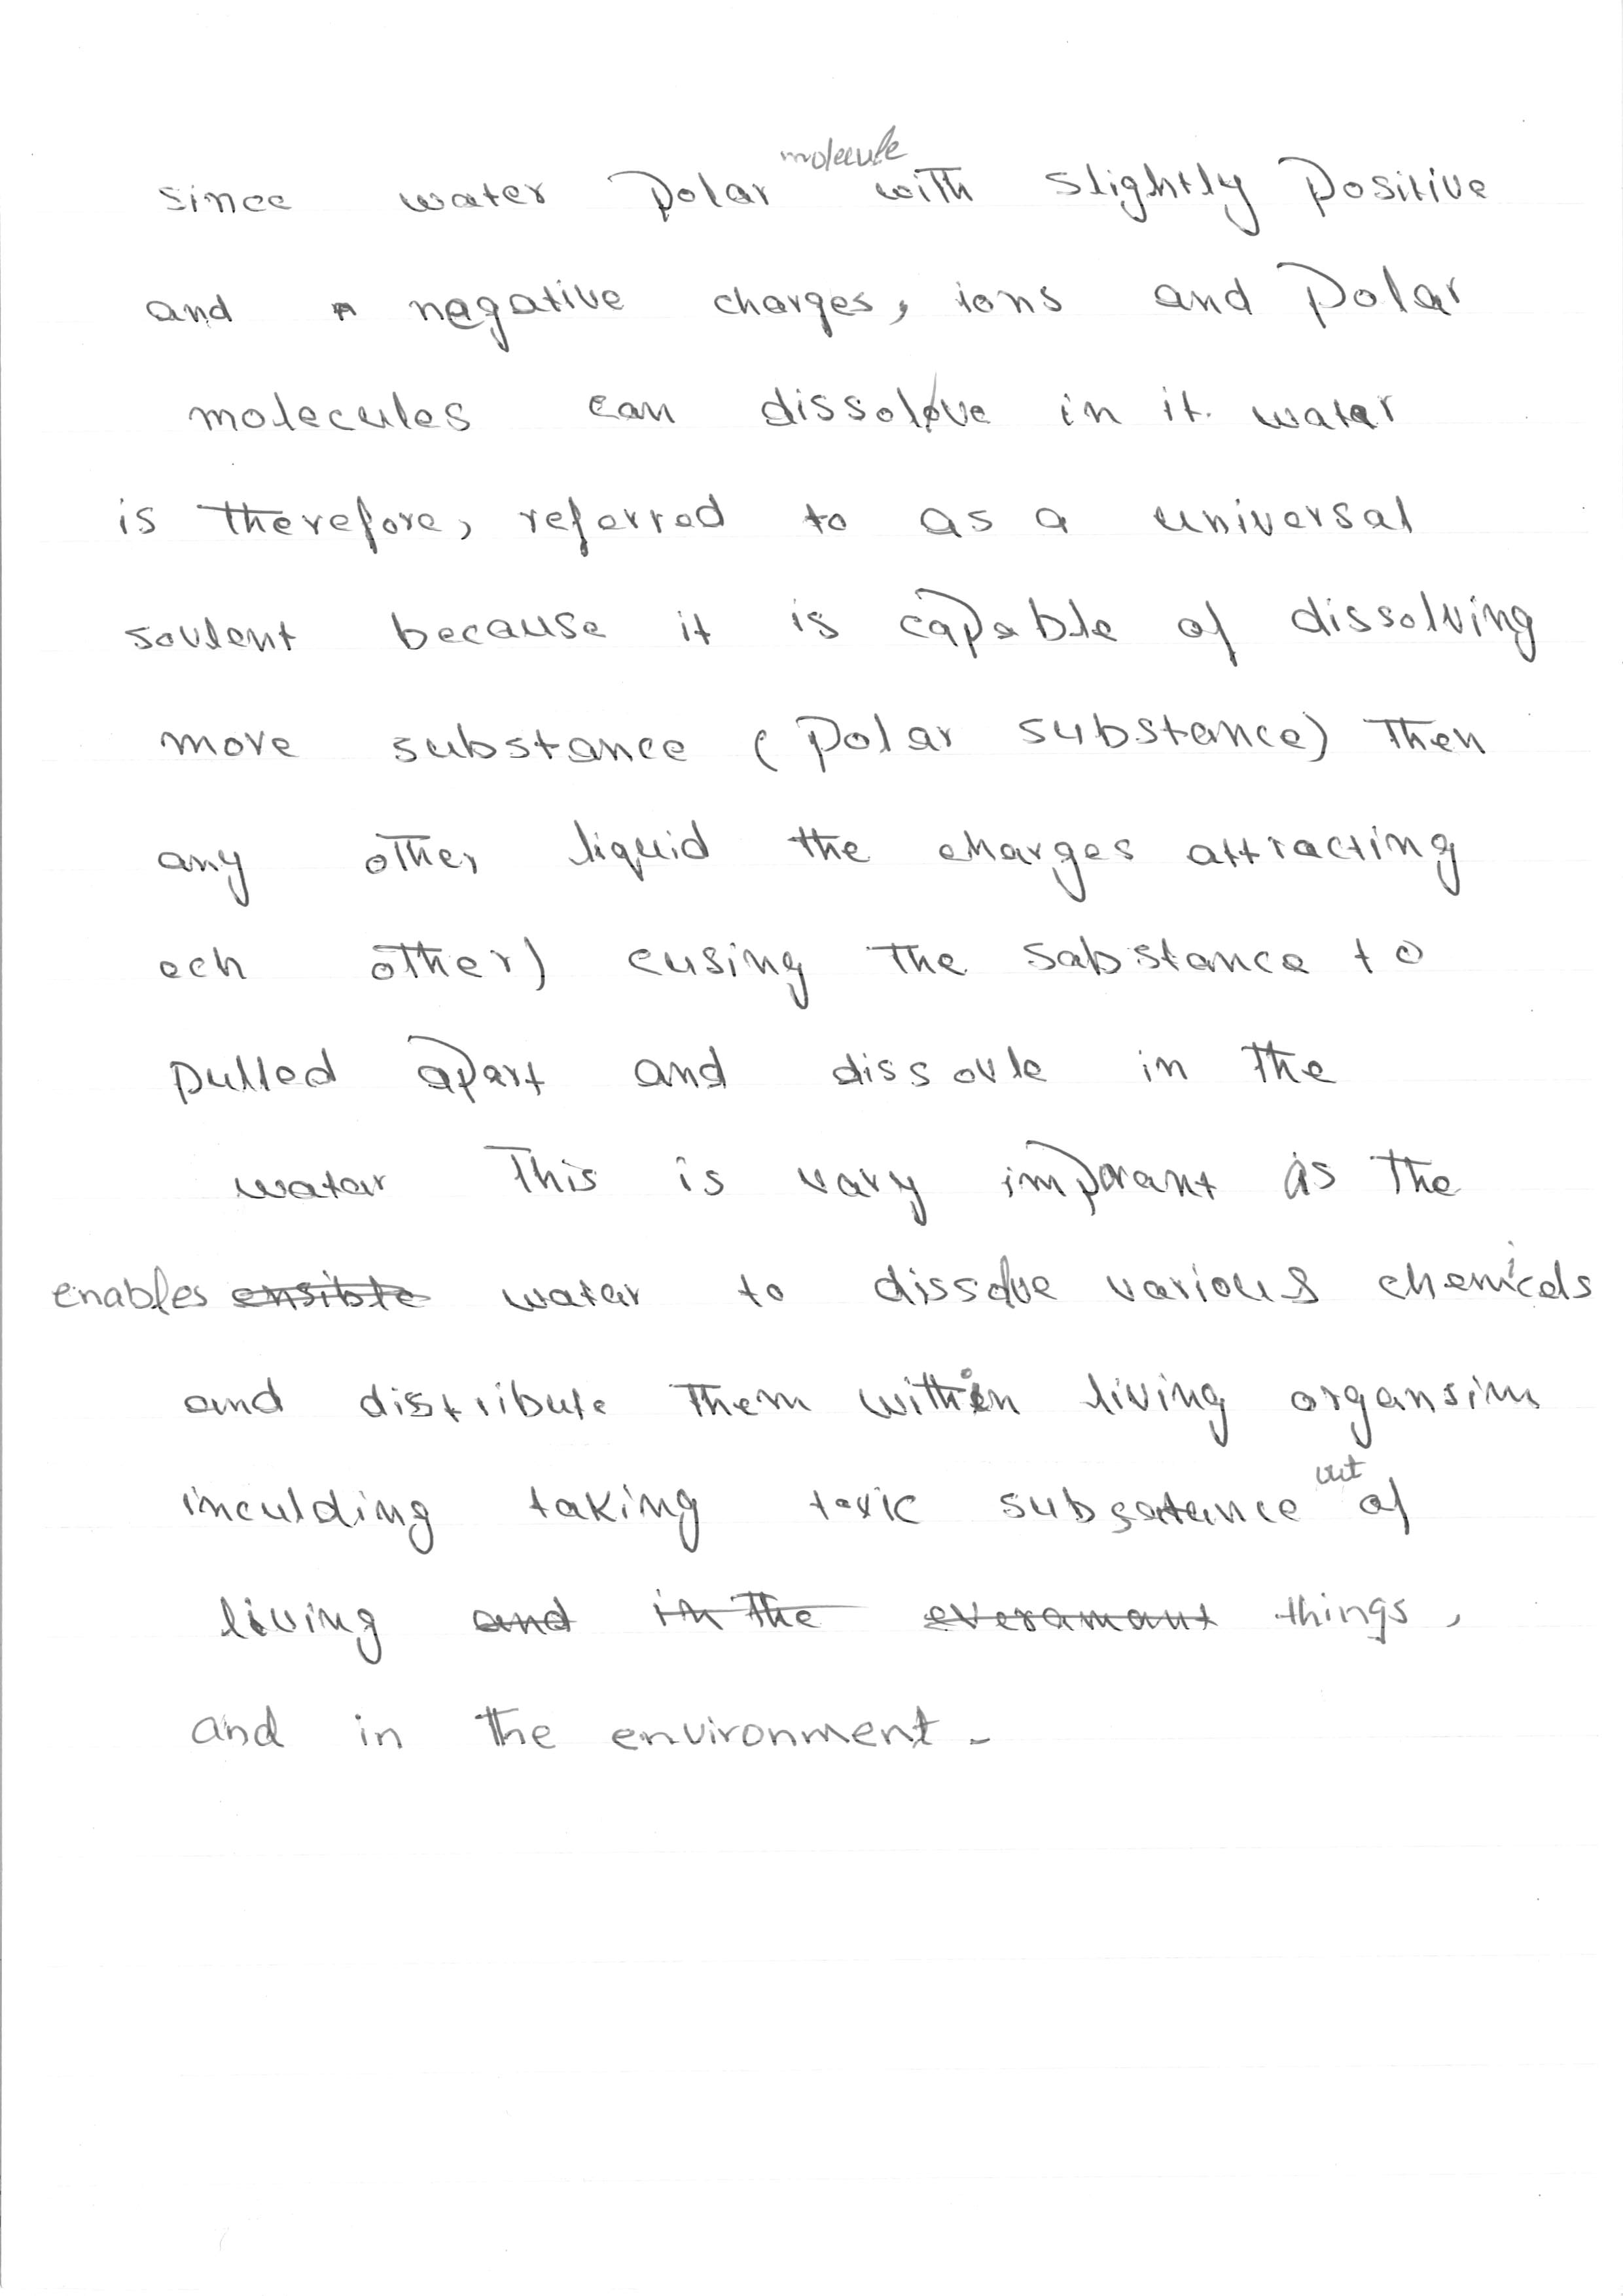 since water polar molecule with slightly positive
and n negative charges, ions and polar
molecules can dissolve in it. water
is therefore, referred to as a universal
sovlent because it is capable of dissolving
more substance (polar substance) then
any other liquid the charges attracting
ech other) cusing the sabstance to
pulled apart and dissovle in the
watar This is vary imporant as the
enables ensible watar to dissolve various chemicals
and distribute them within living organsim
inculding taking toxic subsetance out of
living and in the everamant things,
and in the environment.